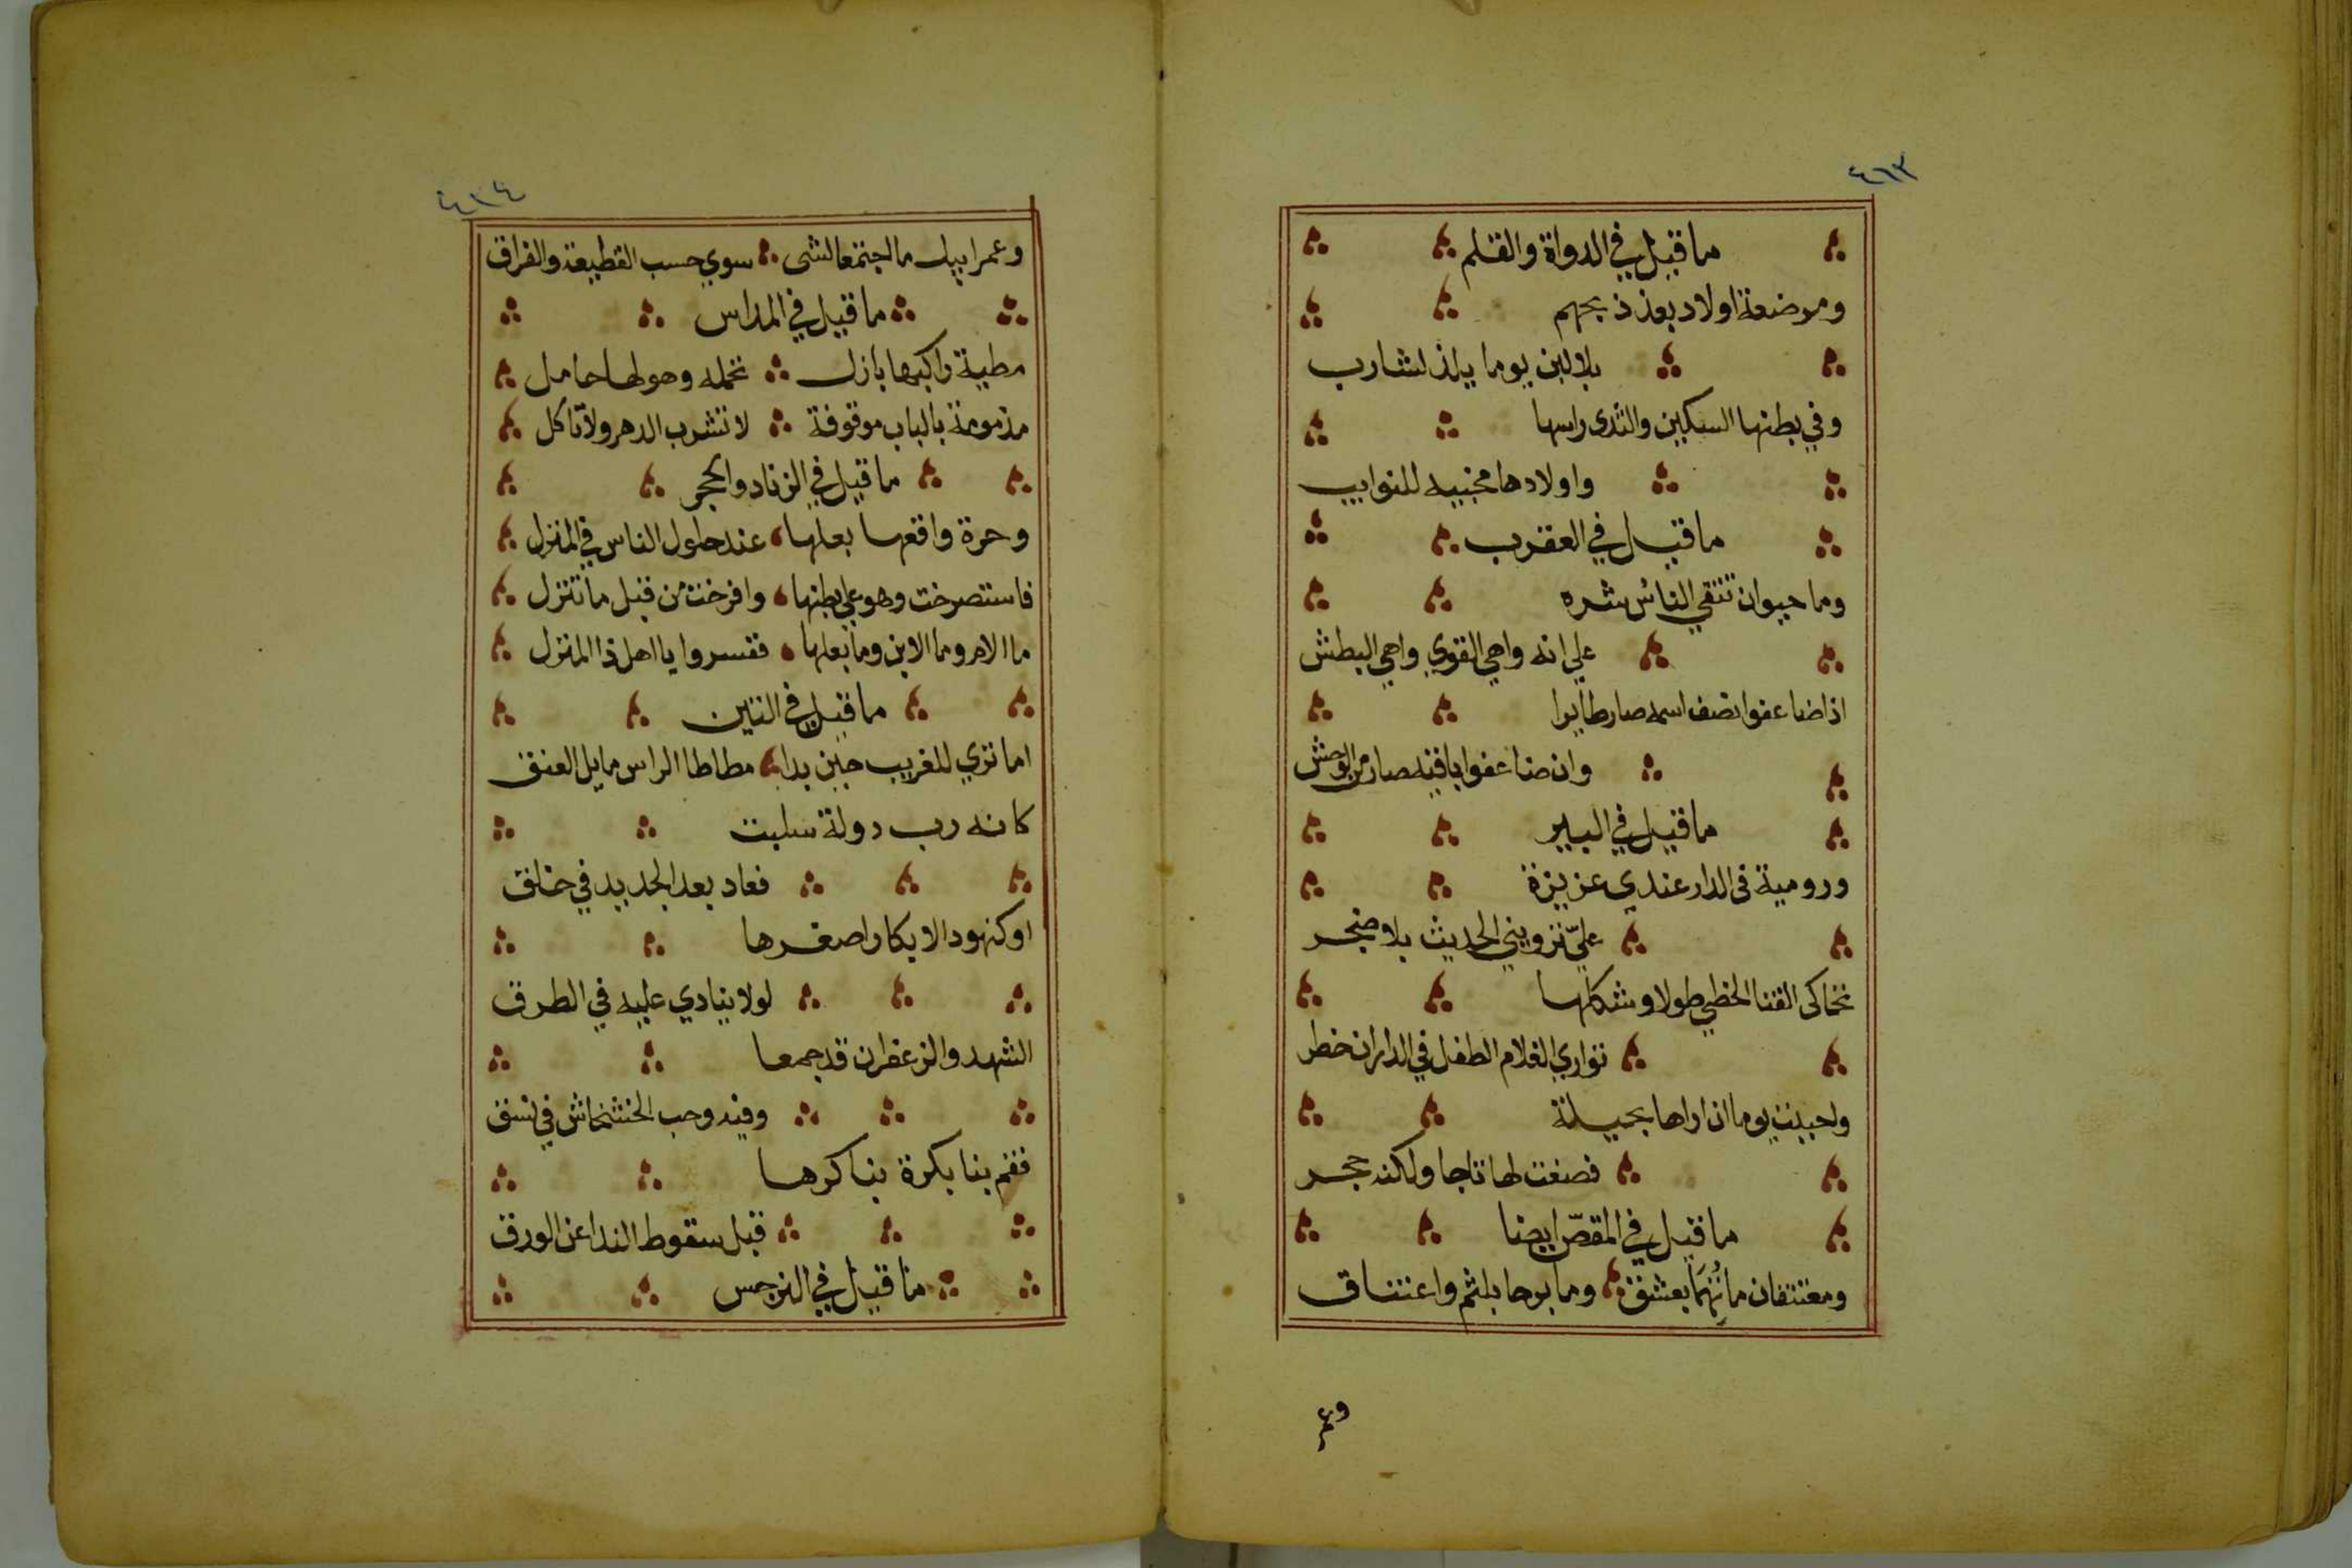 ٤٦٣
ما قيل في الدواة والقلم
ومرضعة اولاد بعد ذبحهم
بلا لبن يوما يلذ لشارب
وفي بطنها السكين والثدي راسها
واولادها مخبيه للنوايب
ما قيل في العقرب
وما حيوان تتقي الناس شره
علي انه واهي القوي واهي البطش
اذا ضاعفوا نصف اسمه صار طايرا
وان ضاعفوا باقيه صار من الوحش
ما قيل في البير
ورومية في الدار عندي عزيزة
عليّ ترويني الحديث بلا ضجر
تحاكي القنا الخطي طولا وشكلها
تواري الغلام الطفل في الدار ان خطر
واحببت يوما ان اراها بحميلة
فصغت لها تاجا ولكنه حجر
ما قيل في المقصّ ايضا
ومعتنقان ما تُهِمَا بعشق وما برحا بلثم واعتناق
وعمر
٤٦٤
وعمر ابيك ما اجتمعا لشي سوي حسب القطيعة والفراق
ما قيل في المداس
مطية راكبها بازل تحمله وهو لها حامل
مذمومة بالباب موقوفة لا تشرب الدهر ولا تاكل
ما قيل في الزناد والحجر
وحرة واقعها بعلها عند حلول الناس في المنزل
فاستصرخت وهو علي بطنها وافرخت من قبل ما تنزل
ما الام وما الابن وما بعلها ففسروا يا اهل ذا المنزل
ما قيل في التين
اما تري للغريب حين بدا مطاطا الراس مايل العنق
كانه رب دولة سلبت
فعاد بعد الجديد في خلق
او كنهود الابكار اصغرها
لولا ينادي عليه في الطرق
الشهد والزعفران قد جمعا
وفيه وحب الخشخاش في نسق
فقم بنا بكرة نباكرها
قبل سقوط الندا عن الورق
ما قيل في النرجس